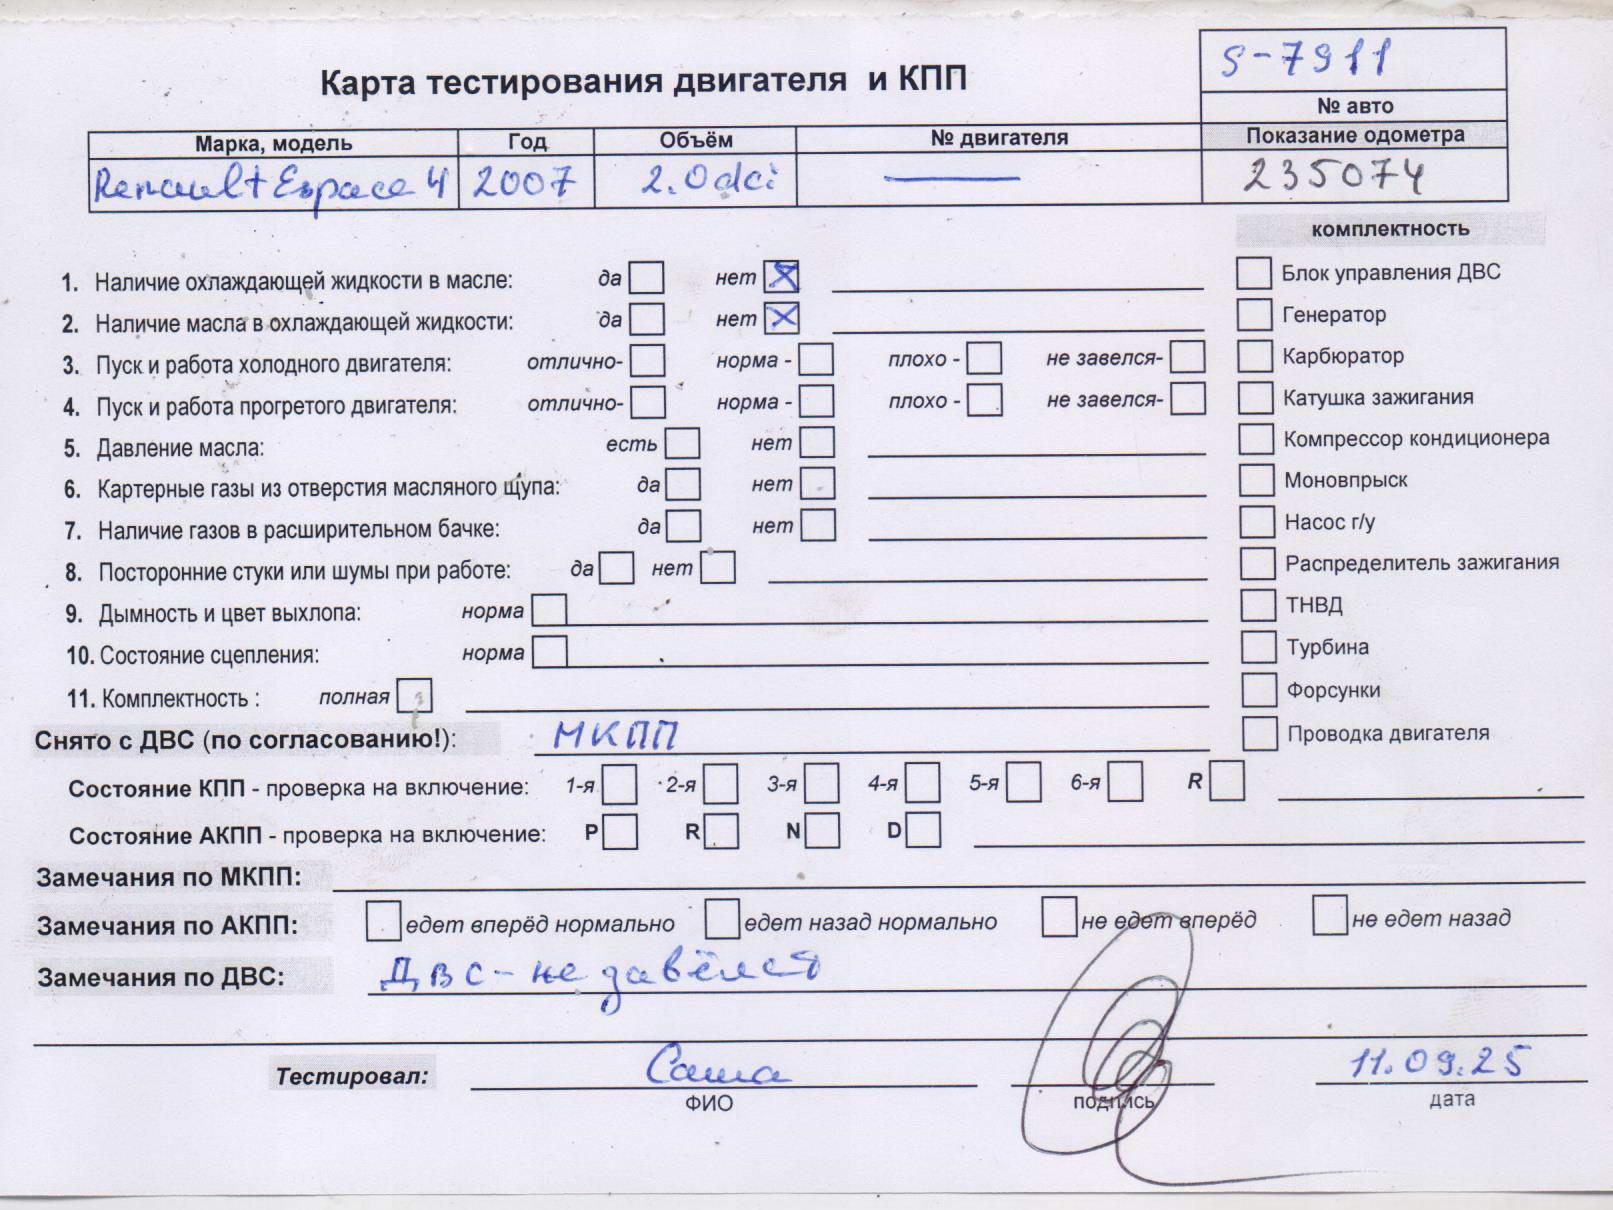 S-7911
Карта тестирования двигателя и КПП
№ авто
Марка, модель Год Объём № двигателя Показание одометра
Renault Espace 4 2007 2.0dci — 235074
комплектность
1. Наличие охлаждающей жидкости в масле: да нет
Блок управления ДВС
2. Наличие масла в охлаждающей жидкости: да нет
Генератор
3. Пуск и работа холодного двигателя: отлично- норма - плохо - не завелся-
Карбюратор
4. Пуск и работа прогретого двигателя: отлично- норма - плохо - не завелся-
Катушка зажигания
5. Давление масла: есть нет
Компрессор кондиционера
6. Картерные газы из отверстия масляного щупа: да нет
Моновпрыск
7. Наличие газов в расширительном бачке: да нет
Насос г/у
8. Посторонние стуки или шумы при работе: да нет
Распределитель зажигания
9. Дымность и цвет выхлопа: норма
ТНВД
10. Состояние сцепления: норма
Турбина
11. Комплектность : полная
Форсунки
Снято с ДВС (по согласованию!): МКПП
Проводка двигателя
Состояние КПП - проверка на включение: 1-я 2-я 3-я 4-я 5-я 6-я R
Состояние АКПП - проверка на включение: P R N D
Замечания по МКПП:
Замечания по АКПП: едет вперёд нормально едет назад нормально не едет вперёд не едет назад
Замечания по ДВС: ДВС - не завёлся
Тестировал: Саша 11.09.25
ФИО подпись дата